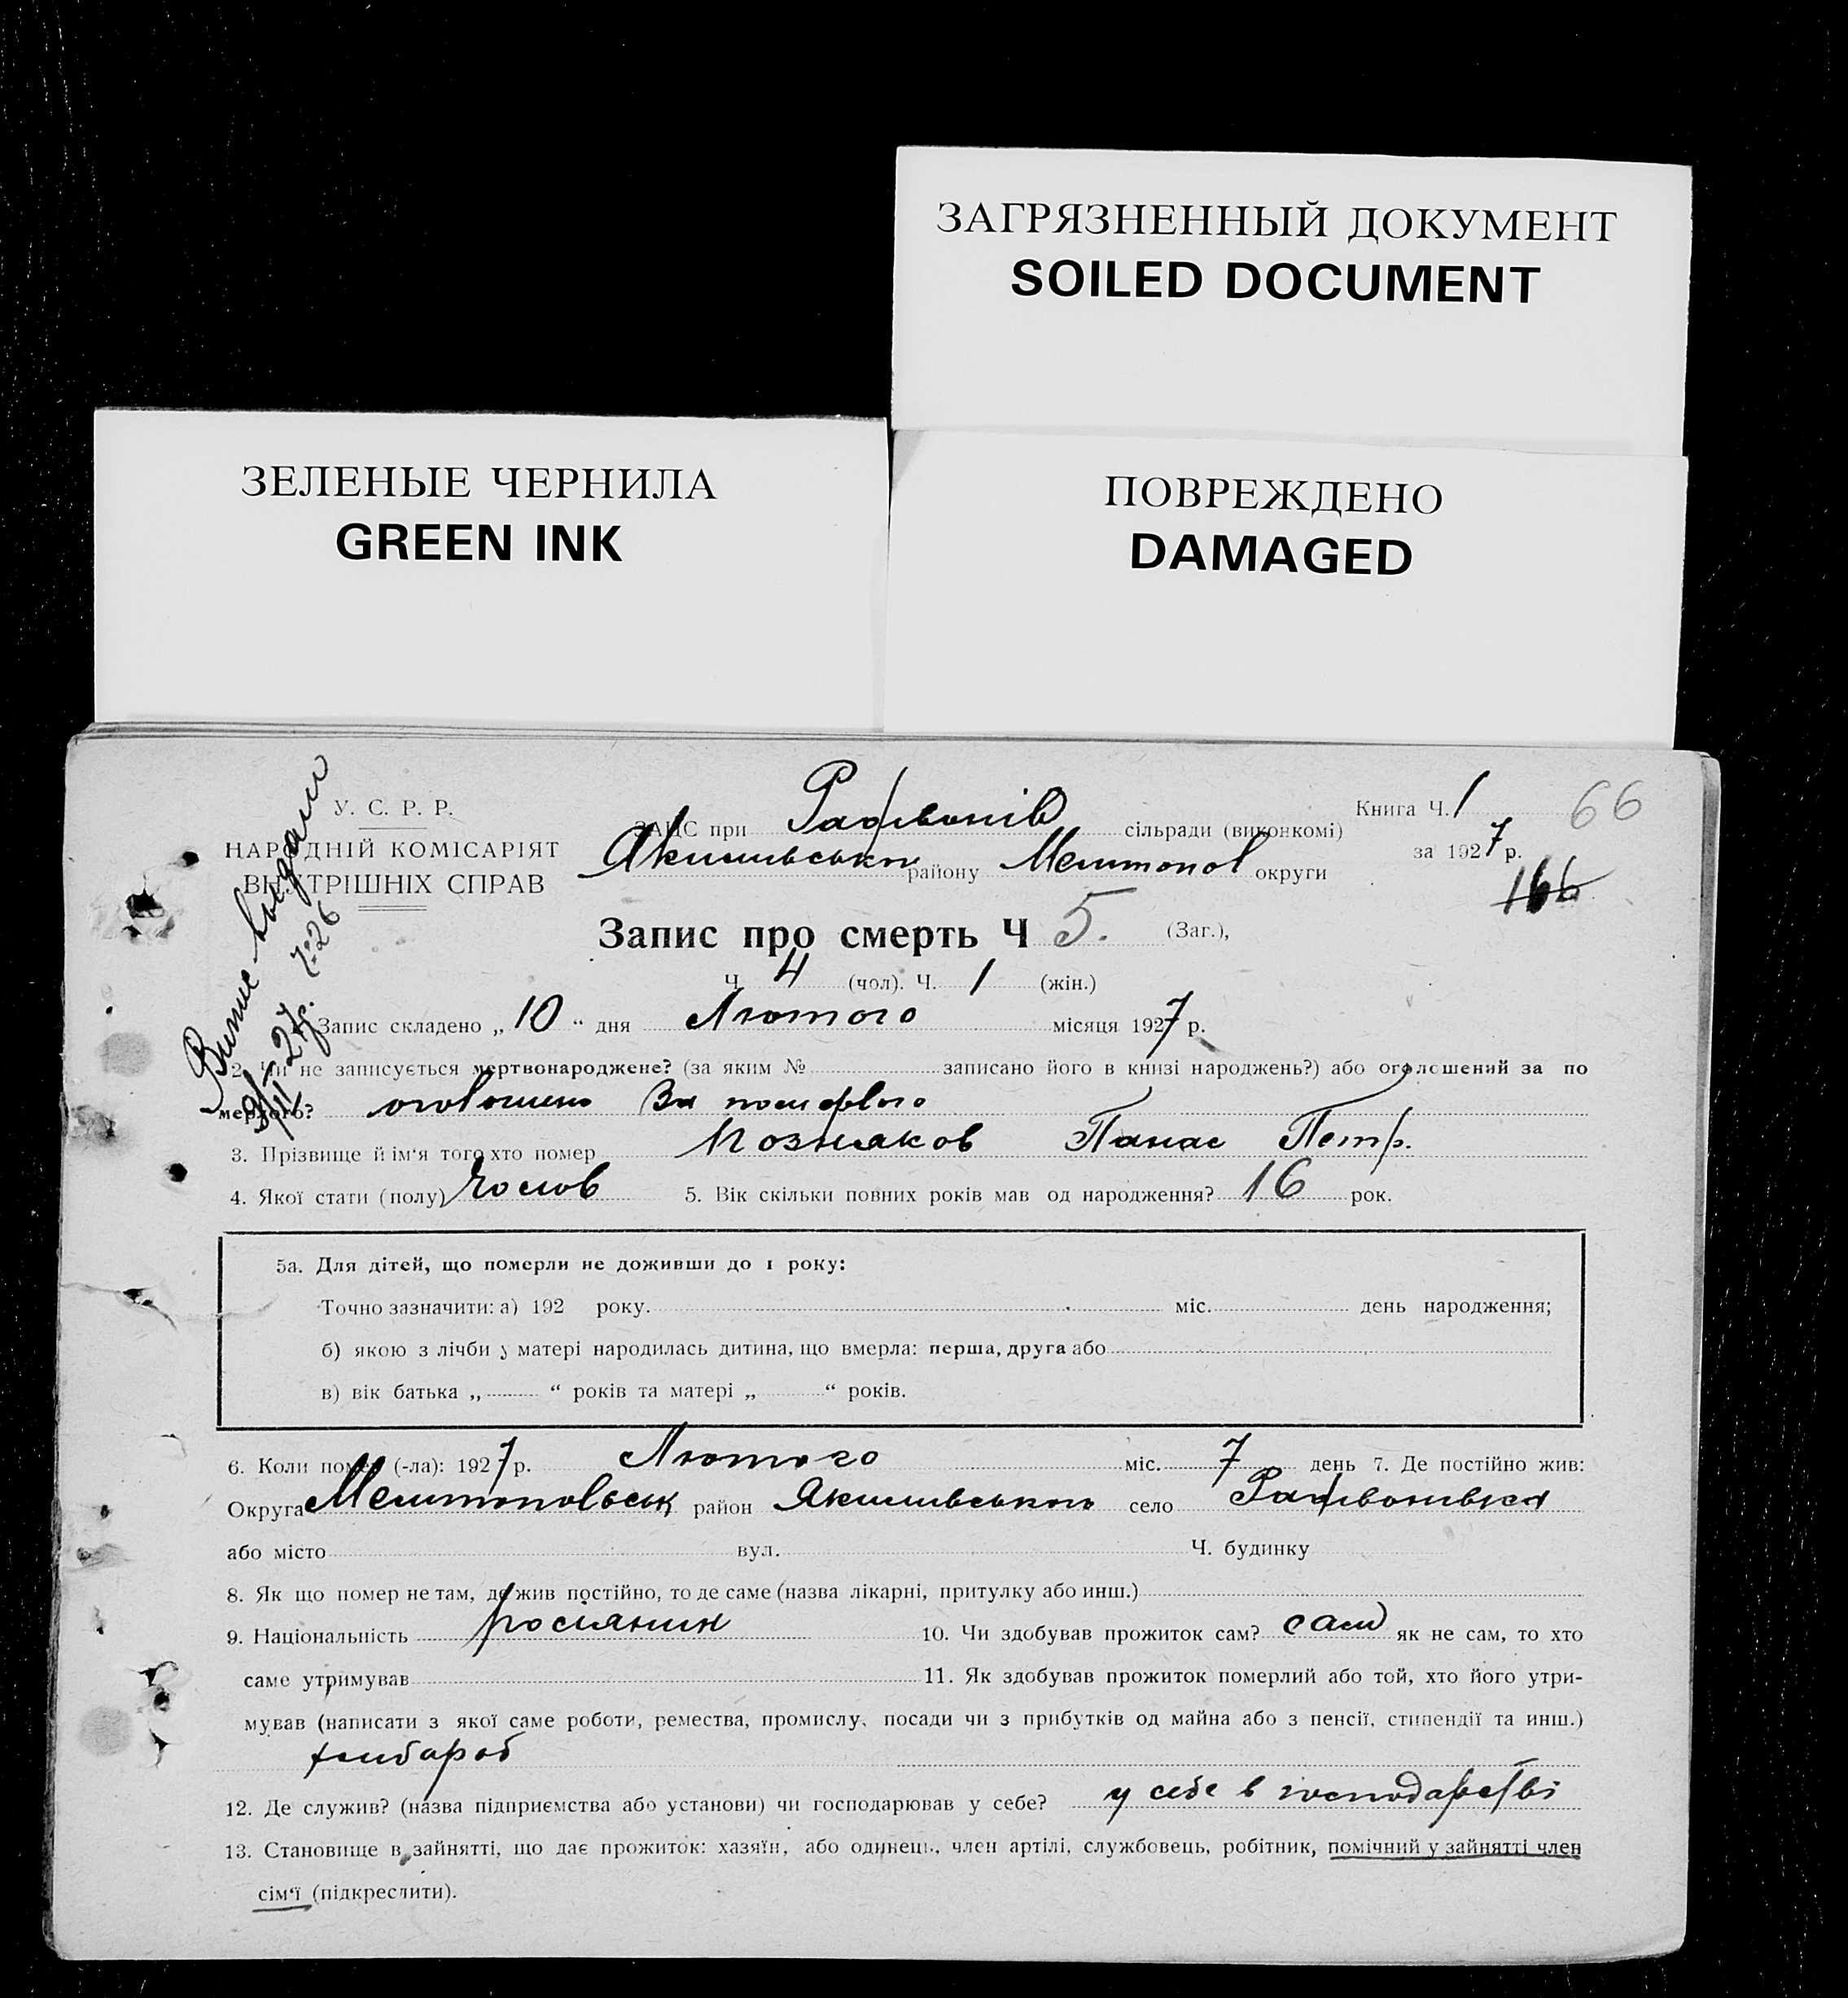 ЗАГРЯЗНЕННЫЙ ДОКУМЕНТ
SOILED DOCUMENT
ЗЕЛЕНЫЕ ЧЕРНИЛА
GREEN INK
ПОВРЕЖДЕНО
DAMAGED
У. С. Р. Р.
НАРОДНІЙ КОМІСАРІЯТ
ВНУТРІШНІХ СПРАВ
ЗАГС при сільради (виконкомі)
району Мелитопол округи
Книга Ч. 1 66
за 1927 р.
166
Запис про смерть Ч 5. (Заг.),
Ч. 4 (чол). Ч. 1 (жін.)
Запис складено „ 10 “ дня Лютого місяця 1927 р.
2. Чи не записується мертвонароджене? (за яким № записано його в книзі народжень?) або оголошений за по
мерлого? оголошено За померлого
3. Прізвище й ім‘я того хто помер Позняков Панас Петр.
4. Якої стати (полу) чолов 5. Вік скільки повних років мав од народження? 16 рок.
5а. Для дітей, що померли не доживши до 1 року:
Точно зазначити: а) 192 року. міс. день народження;
б) якою з лічби у матері народилась дитина, що вмерла: перша, друга або
в) вік батька „ “ років та матері „ “ років.
6. Коли помер (-ла): 1927 р. Лютого міс. 7 день 7. Де постійно жив:
Округа Мелитопольськ район Якимивського село
або місто вул. Ч. будинку
8. Як що помер не там, де жив постійно, то де саме (назва лікарні, притулку або инш.)
9. Національність росіянин 10. Чи здобував прожиток сам? сам як не сам, то хто
саме утримував 11. Як здобував прожиток померлий або той, хто його утри-
мував (написати з якої саме роботи, ремества, промислу, посади чи з прибутків од майна або з пенсії, стипендії та инш.)
хлибароб
12. Де служив? (назва підприємства або установи) чи господарював у себе? у себе в господарстві
13. Становище в зайнятті, що дає прожиток: хазяїн, або одинець, член артілі, службовець, робітник, помічний у зайнятті член
сім‘ї (підкреслити).